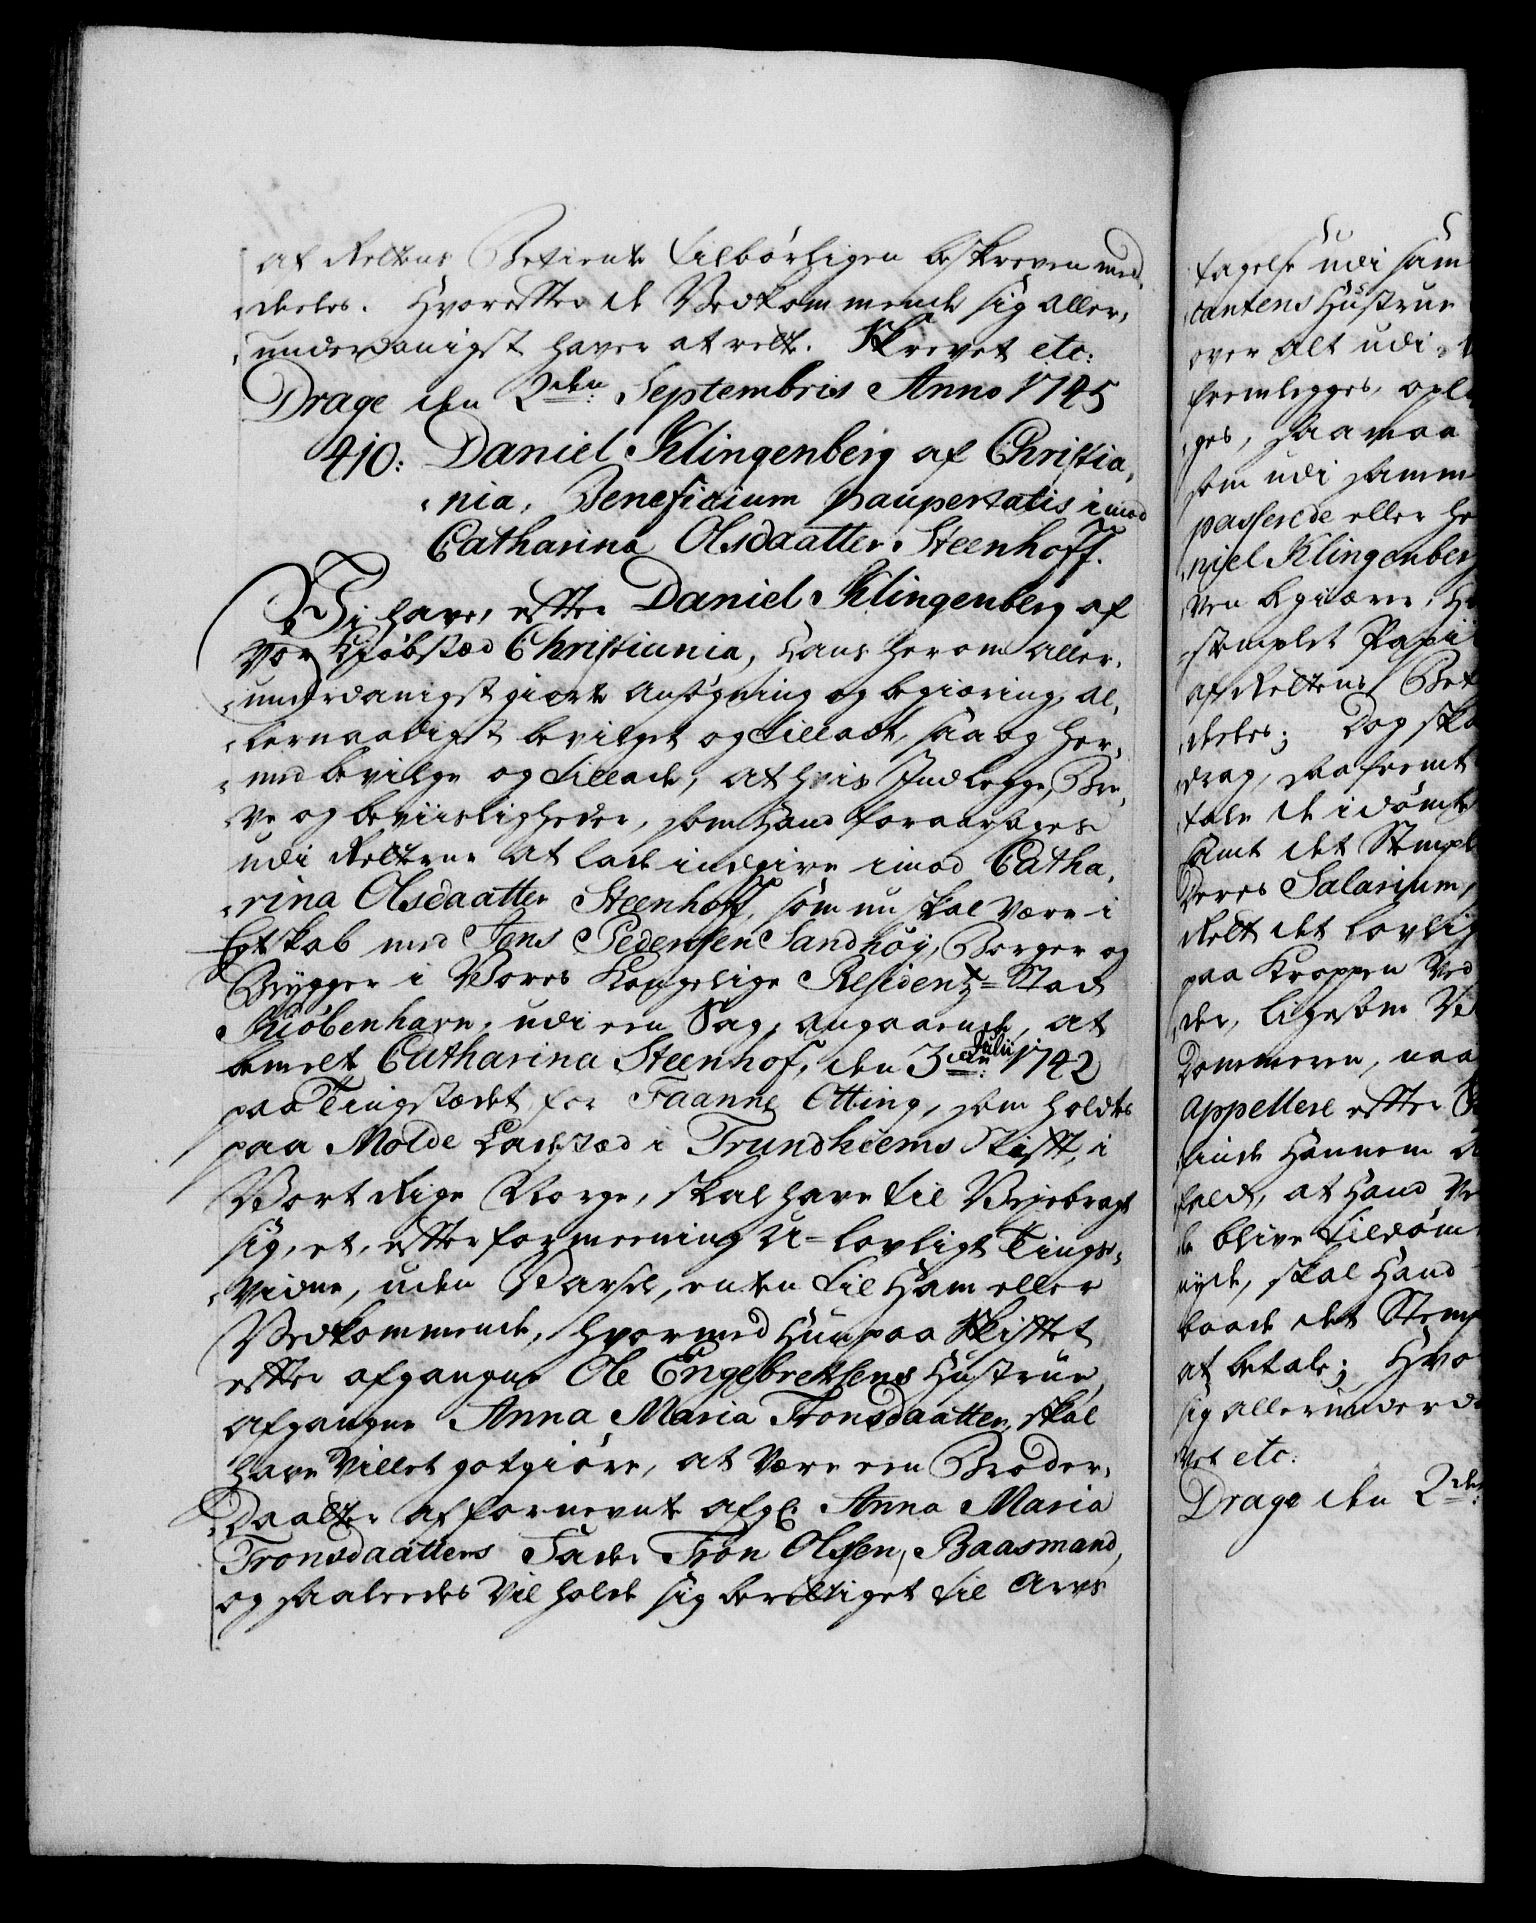 af Rettens Betiente tilbørligen beskreven med¬
deeles. Hvorefter de Vedkommende sig aller¬
underdanigst haver at rette. Skrevet etc:
Drage den 2den Septembris Anno 1745
410: Daniel Klingenberg af Christia¬
nia, Beneficium paupertatis imod
Catharina Olsdaatter Steenhoff.
Vi have, efter Daniel Klingenberg af
Vor Kiøbstæd Christiania, Hans herom aller¬
underdanigst giorte Ansøgning og begiæring, al¬
lernaadigst bevilget og tilladt, saa og her¬
med bevilge og tillade, at hvis Indlegge, Bre¬
ve og beviisligheder, som Hand foraarsages
udi Retterne at lade indgive imod Catha¬
rina Olsdaatter Steenhoff, som nu skal være i
Egtskab med Jens Pedersen Sandhøy, Borger og
Brygger i Vores Kongelige Residentz=Stad
Kiøbenhavn, udi een Sag, angaaende, at
bemelte Catharina Steenhof, den 3die Julii 1742
paa Tingstædet for Faanne Otting, som holdtes
paa Molde Ladestæd i Trundhiems Stift, i
Vort Rige Norge, skal have til Vejebragt
sig, et, efter formeening U=lovligt Tings¬
vidne, uden Varsel, enten til Ham eller
Vedkommende, hvormed Hun paa Skiftet
efter afgangne Ole Engebretsens Hustrue,
afgangne Anna Maria Tronsdaatter, skal
have villet gotgiøre, at være een Broder¬
Daatter af fornevnte afg: Anna Maria
Tronsdaatters Fader Tron Olssen, Baasmand,
og saaledes vil holde sig berettiget til Arvs
tagelse udi sam
cantens Hustrue
over alt udi
fremlegges, opl
ges, saa maa
som udi samm
passerede eller he
niel Klingenberg
ven begiære, H
stemplet Papii
af Rettens Bet
deeles; Dog ska
drag, saafremt
tale de idømte
samt det Stempl
Deres Salarium,
Rett det lovlig
paa Kroppen ved
der, ligesom V
Dommeren, naa
appellere efter
finde Hannem
fald, at Hand
de blive tildøm
nyde, skal Hand
baade det Stemp
at betale; Hvo
sig allerunderd
vet etc:
Drage den 2den